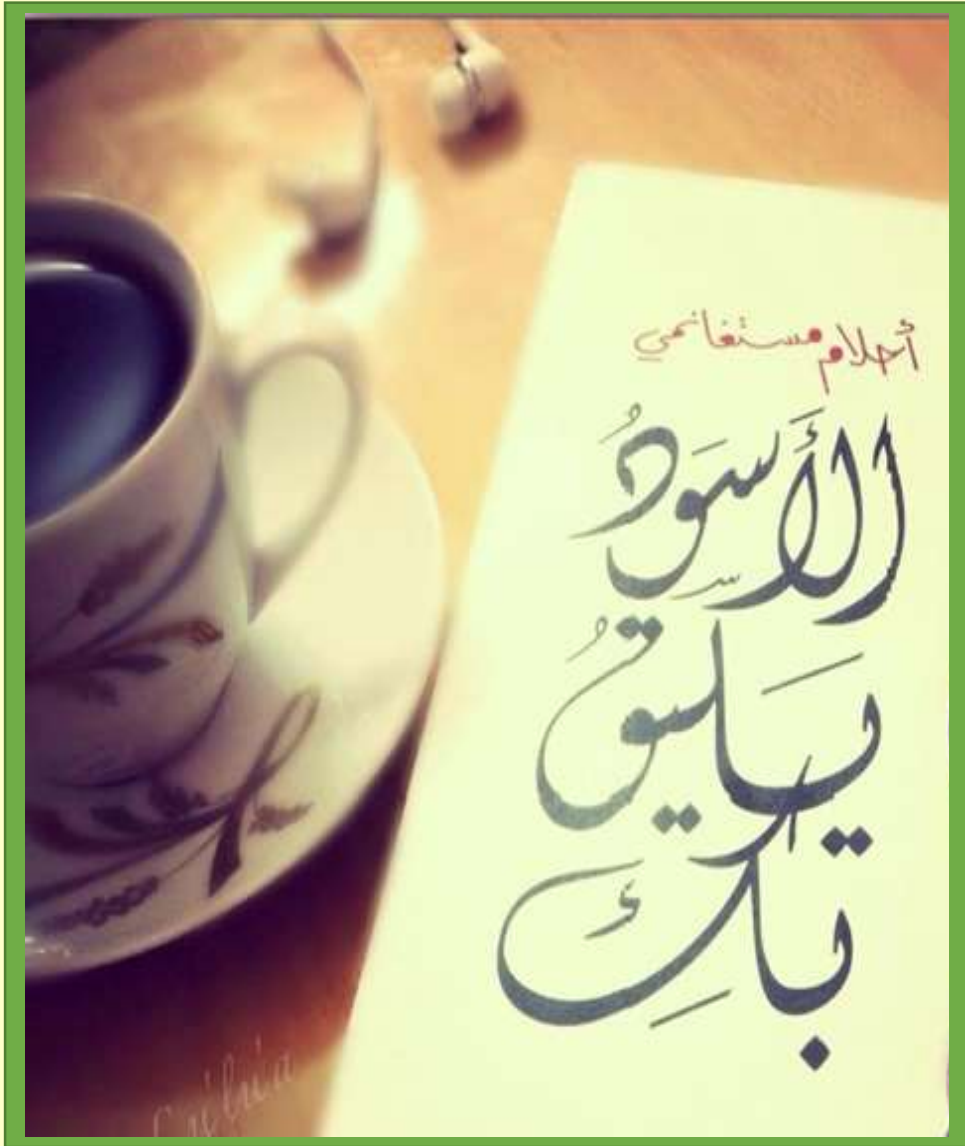 أحلام مستغانمي
الأَسوَدُ
يَليقُ
بكِ